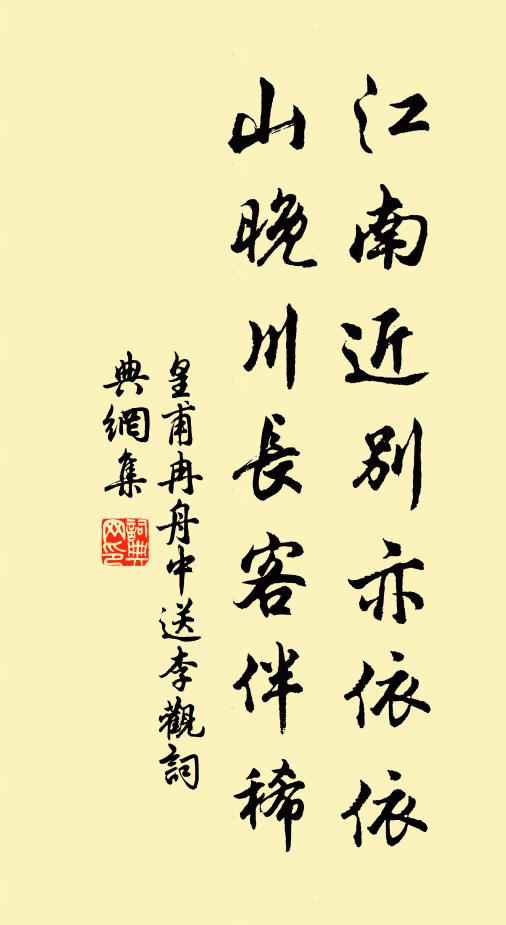 江南近別亦依依
山晚川長客伴稀
皇甫冉舟中送李觀詞
典網集
詞典
网印